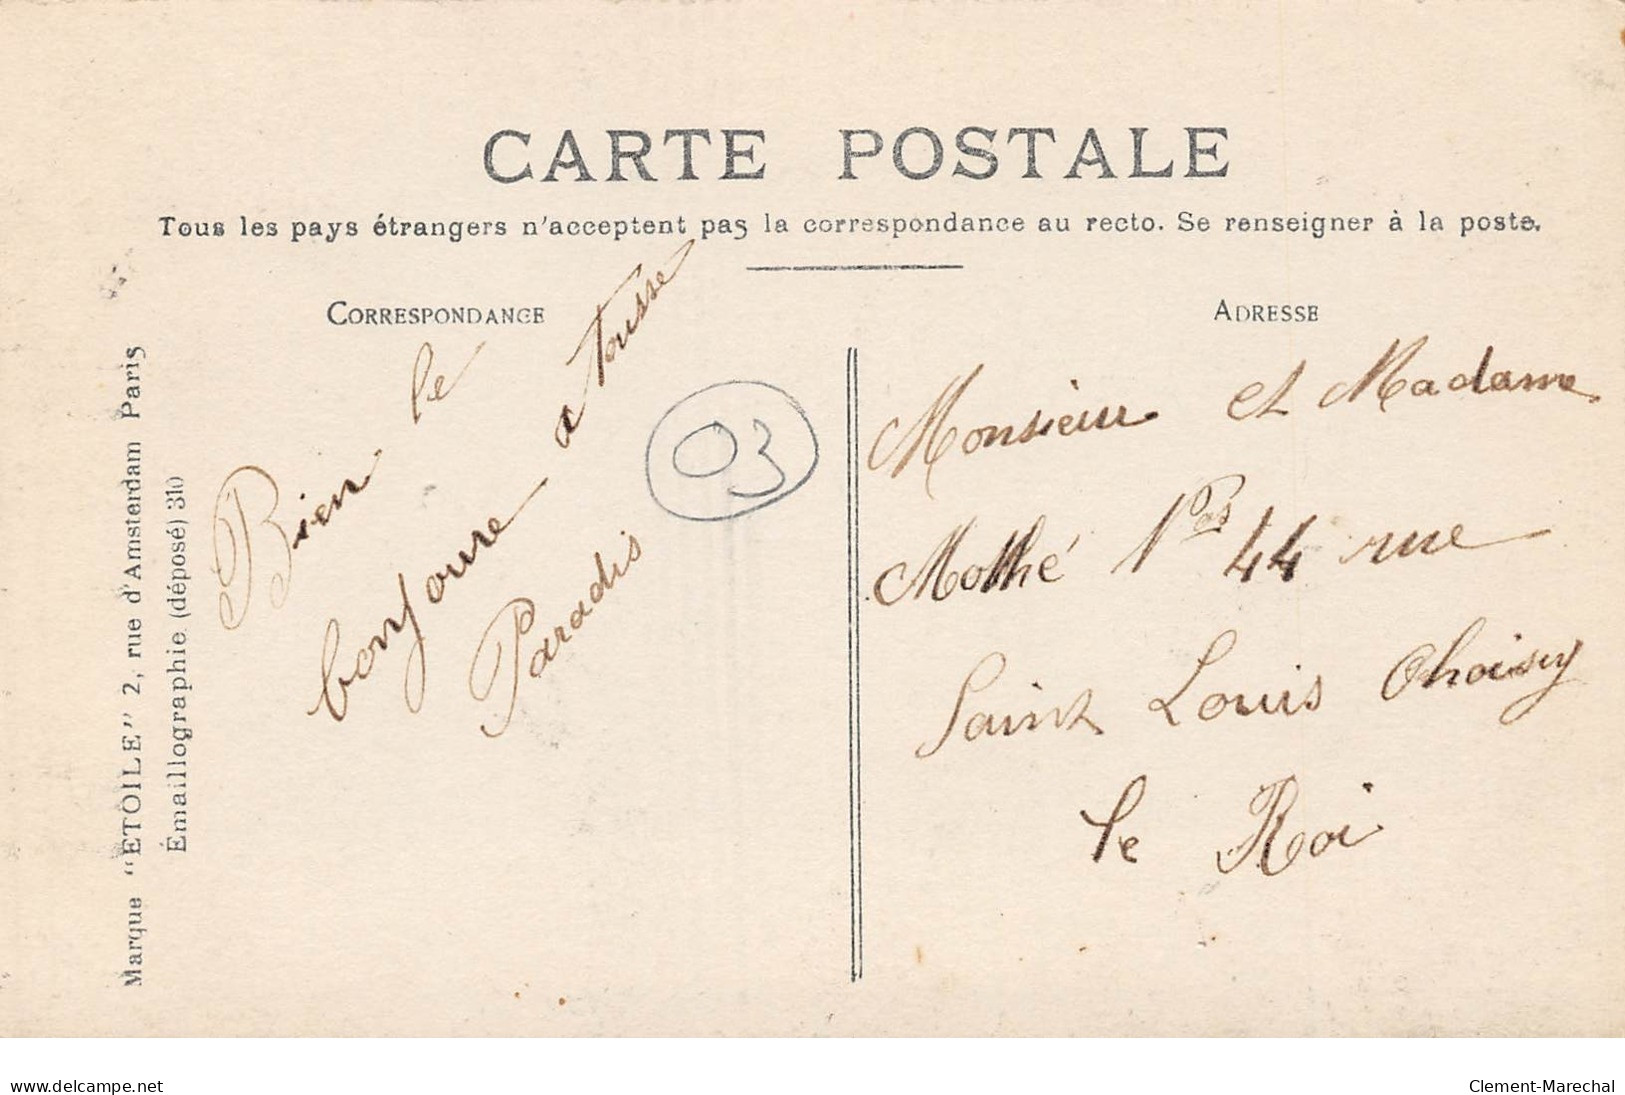 CARTE POSTALE
Tous les pays étrangers n'acceptent pas la correspondance au recto. Se renseigner à la poste.
CORRESPONDANCE
ADRESSE
Marque "ETOILE" 2, rue d'Amsterdam Paris
Émaillographie (déposé) 310
Bien le
bonjoure a tousse
Paradis
03
Monsieur et Madame
Mothé 44 rue
Saint Louis Choisy
le Roi
www.delcampe.net
Clement-Marechal